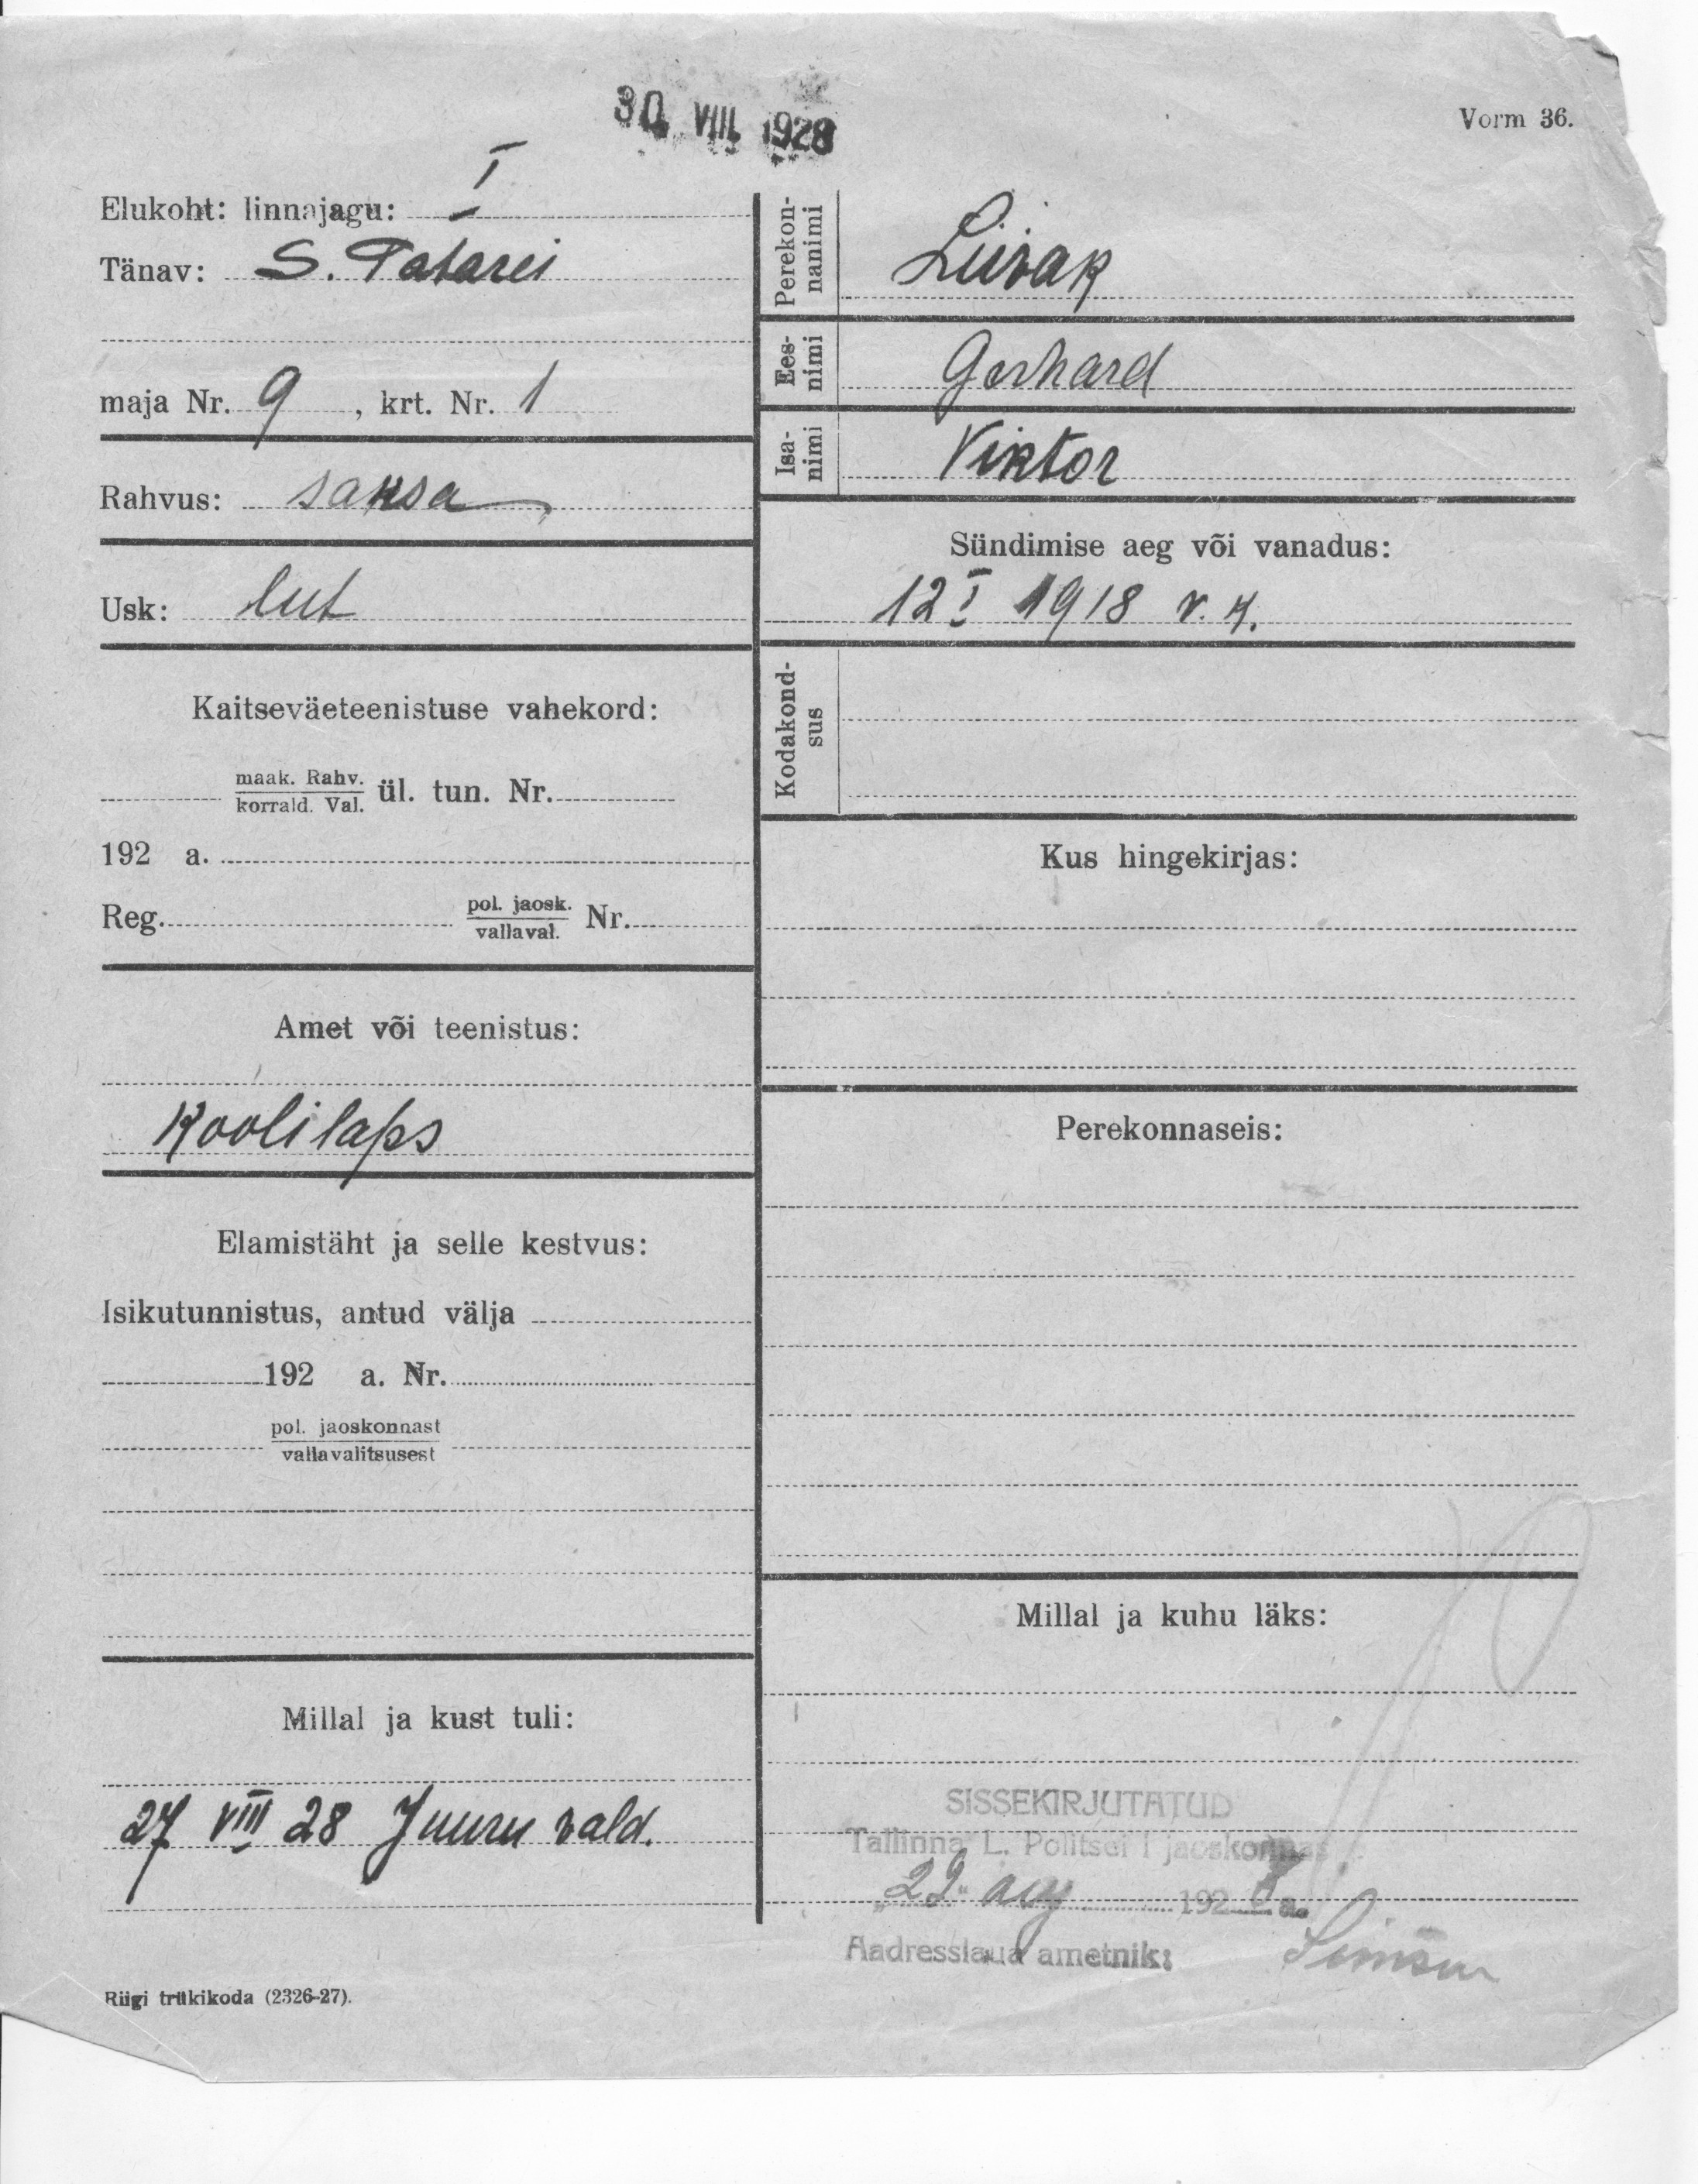 30. VIII. 1928
Vorm 36.
Elukoht: linnajagu: I
Tänav: S. Patarei
maja Nr. 9 , krt. Nr. 1
Rahvus: saksa
Usk: lut
Kaitseväeteenistuse vahekord:
maak. Rahv.
korrald. Val.
ül. tun. Nr.
192 a.
Reg. pol. jaosk. Nr.
vallaval.
Amet või teenistus:
Koolilaps
Elamistäht ja selle kestvus:
Isikutunnistus, antud välja
192 a. Nr.
pol. jaoskonnast
vallavalitsusest
Millal ja kust tuli:
27 VIII 28 Juuru vald.
Riigi trükikoda (2326-27).
Perekon-
nanimi
Liivak
Ees-
nimi
Gerhard
Isa-
nimi
Viktor
Sündimise aeg või vanadus:
12 I 1918 v. k.
Kodakond-
sus
Kus hingekirjas:
Perekonnaseis:
Millal ja kuhu läks:
SISSEKIRJUTATUD
Tallinna L. Politsei I jaoskonnas
„29" aug 1928 a.
Aadresslaua ametnik: